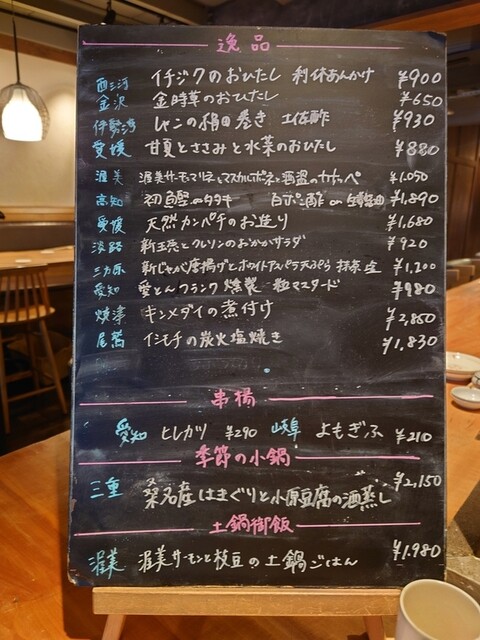 逸品
西三河 イチジクのおひたし 利休あんかけ ¥900
金沢 金時草のおひたし ¥650
伊勢湾 シャコの絹田巻き 土佐酢 ¥930
愛媛 甘夏とささみと水菜のおひたし ¥880
渥美 渥美サーモンマリネとマスカルポーネと酒盗のカナッペ ¥1,050
高知 初鰹のタタキ 白ポン酢 or 生醤油 ¥1,890
愛媛 天然カンパチのお造り ¥1,680
淡路 新玉葱とクレソンのおかかサラダ ¥920
三方原 新じゃが唐揚げとホワイトアスパラ天ぷら 抹茶塩 ¥1,200
愛知 愛とんフランク 燻製 粒マスタード ¥980
焼津 キンメダイの煮付け ¥2,850
尾鷲 イシモチの炭火塩焼き ¥1,830
串揚
愛知 ヒレカツ ¥290 岐阜 よもぎふ ¥210
季節の小鍋
三重 桑名産はまぐりと小原豆腐の酒蒸し ¥2,150
土鍋御飯
渥美 渥美サーモンと枝豆の土鍋ごはん ¥1,980